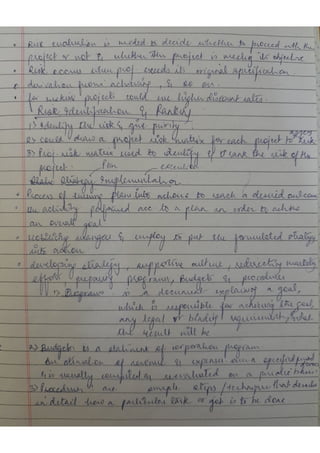 • Risk evaluation is needed to decide whether to proceed with the
project or not & whether the project is meeting its objective
• Risk occurs when proj exceeds its original specification
• deviation from achieving, & so on.
• for riskier projects could use higher discount rates.
Risk Identification & Ranking
1) Identify the risk & give purity
2) could draw a project risk matrix for each project to risk
3) Proj risk matrix used to identify & rank the risk of the
project. Plan execution
Strategy Implementation
• Process of turning plan into actions to reach a desired outcome
• the activity performed acc to a plan in order to achieve
an overall goal
• motivating managers & employ to put the formulated strategy
into action
• developing strategy, supportive culture, redirecting marketing
efforts preparing programs, Budgets & procedures
1) Program is a document explaining a goal,
which is responsible for achieving the goal,
any legal or binding requirement, what
the result will be
2) Budgets is a statement of corporation program
An estimation of revenue & expenses over a specified period
& is usually compiled & re-evaluated on a periodic basis
3) Procedures are simple steps / techniques that describe
in detail how a particular task or job is to be done